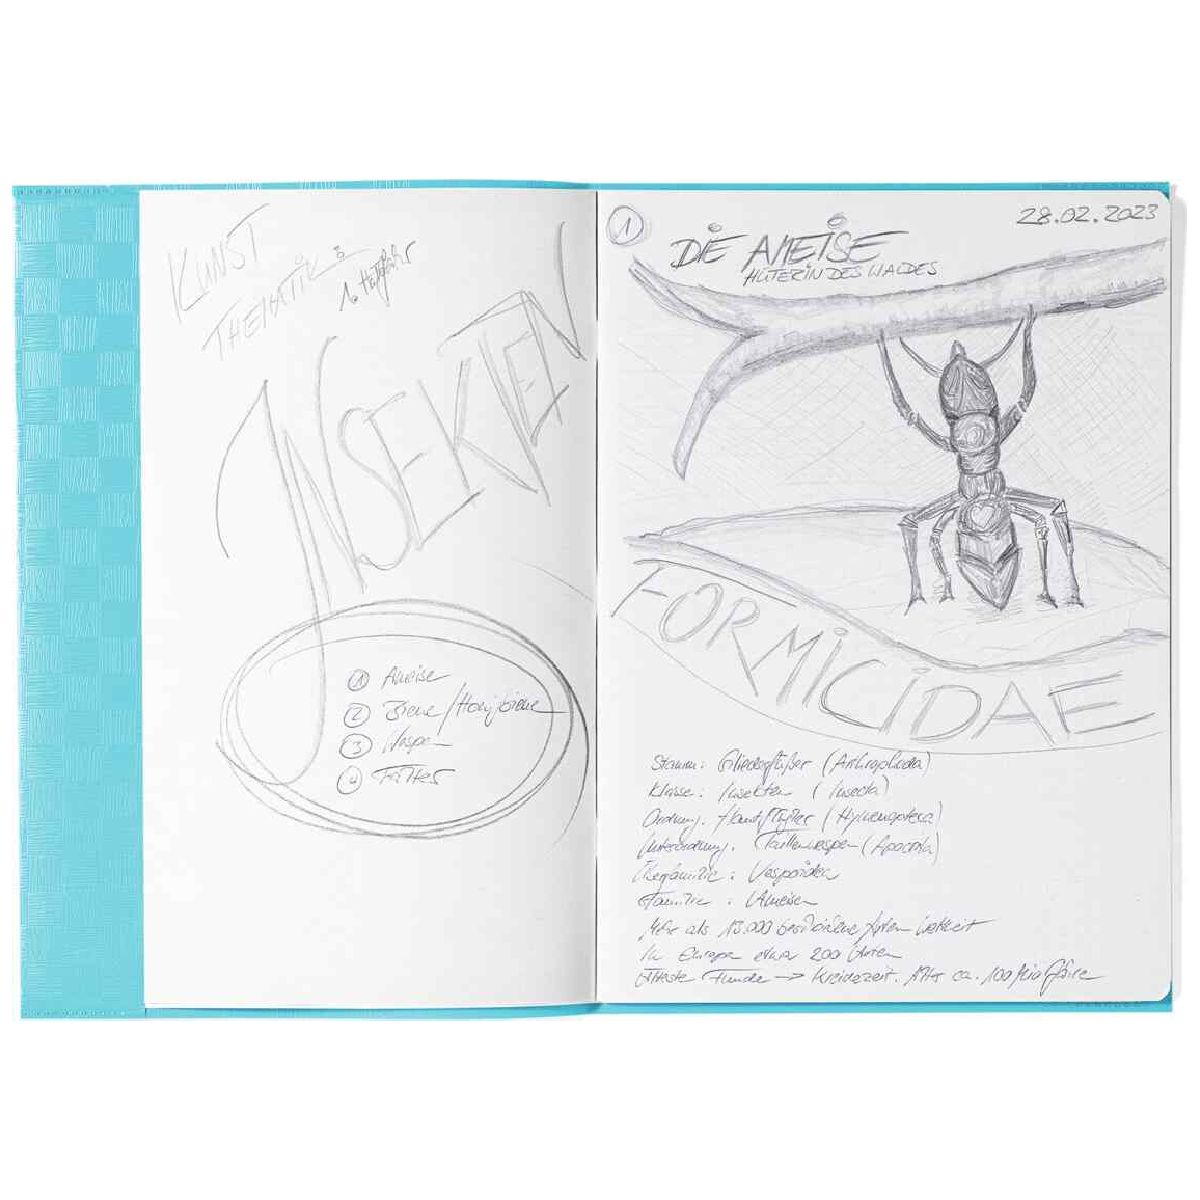 KUNST
THEMATIK:
1. Halbjahr
INSEKTEN
1 Ameise
2 Biene/Honigbiene
3 Wespen
4 Falter
1
28.02.2023
DIE AMEISE
HÜTERIN DES WALDES
FORMICIDAE
Stamm: Gliederfüßer (Arthropoda)
Klasse: Insekten (Insecta)
Ordnung: Hautflügler (Hymenoptera)
Unterordnung: Taillenwespen (Apocrita)
Überfamilie: Vespoidea
Familie: Ameisen
Mehr als 13.000 beschriebene Arten weltweit
In Europa etwa 200 Arten
Älteste Funde → Kreidezeit. Alter ca. 100 Mio Jahre